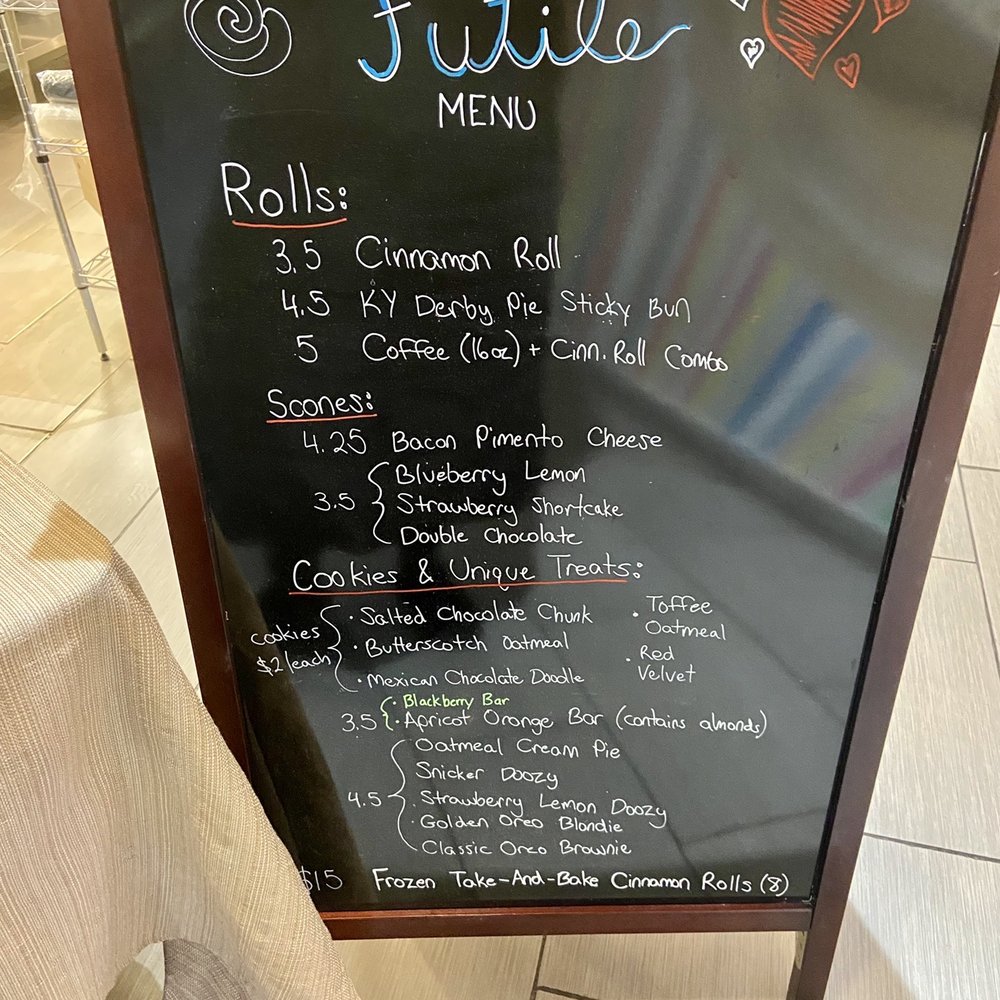 Futile
MENU
Rolls:
3.5 Cinnamon Roll
4.5 KY Derby Pie Sticky Bun
5 Coffee (16oz) + Cinn. Roll Combo
Scones:
4.25 Bacon Pimento Cheese
Blueberry Lemon
3.5 Strawberry Shortcake
Double Chocolate
Cookies & Unique Treats:
cookies $2/each
· Salted Chocolate Chunk
· Butterscotch Oatmeal
· Mexican Chocolate Doodle
· Toffee
Oatmeal
· Red
Velvet
· Blackberry Bar
3.5 · Apricot Orange Bar (contains almonds)
Oatmeal Cream Pie
Snicker Doozy
4.5 · Strawberry Lemon Doozy
· Golden Oreo Blondie
· Classic Oreo Brownie
$15 Frozen Take-And-Bake Cinnamon Rolls (8)